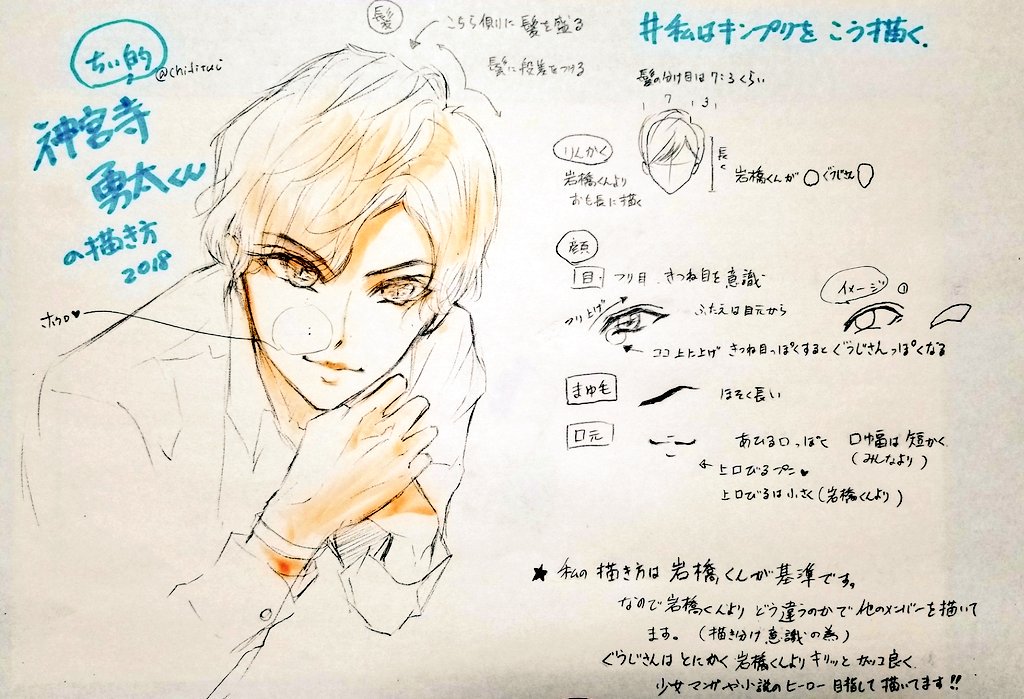 ちぃ的
@chifirui
神宮寺
勇太くん
の描き方
2018
ホクロ♥
髪
こちら側りに髪を盛る
髪に段差をつける
#私はキンプリをこう描く.
髪の分け目は7:3くらい
7 3
長く
りんかく
岩橋くんより
おも長に描く
岩橋くんが○ぐうじさん
顔
目 つり目 きつね目を意識
つり上げ
ふたえは目元から
イメージ ①
ココ上に上げ きつね目っぽくするとぐうじさんっぽくなる
まゆ毛 ほそく長い
口元 あひる口っぽく 口巾畐は短かく.
(みんなより)
←上口びるプニ♥
上口びるは小さく(岩橋くんより)
★ 私の描き方は岩橋くんが基準です。
なので岩橋くんよりどう違うのかで他のメンバーを描いて
ます。(描き分け意識の為)
ぐうじさんはとにかく岩橋くんよりキリッとカッコ良く.
少女マンガや小説のヒーロー目指して描いてます!!